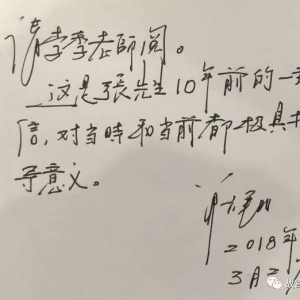 请李季老師阅。
这是張先生10年前的一
信,对当時和当前都极具
导意义。
2018年
3月2